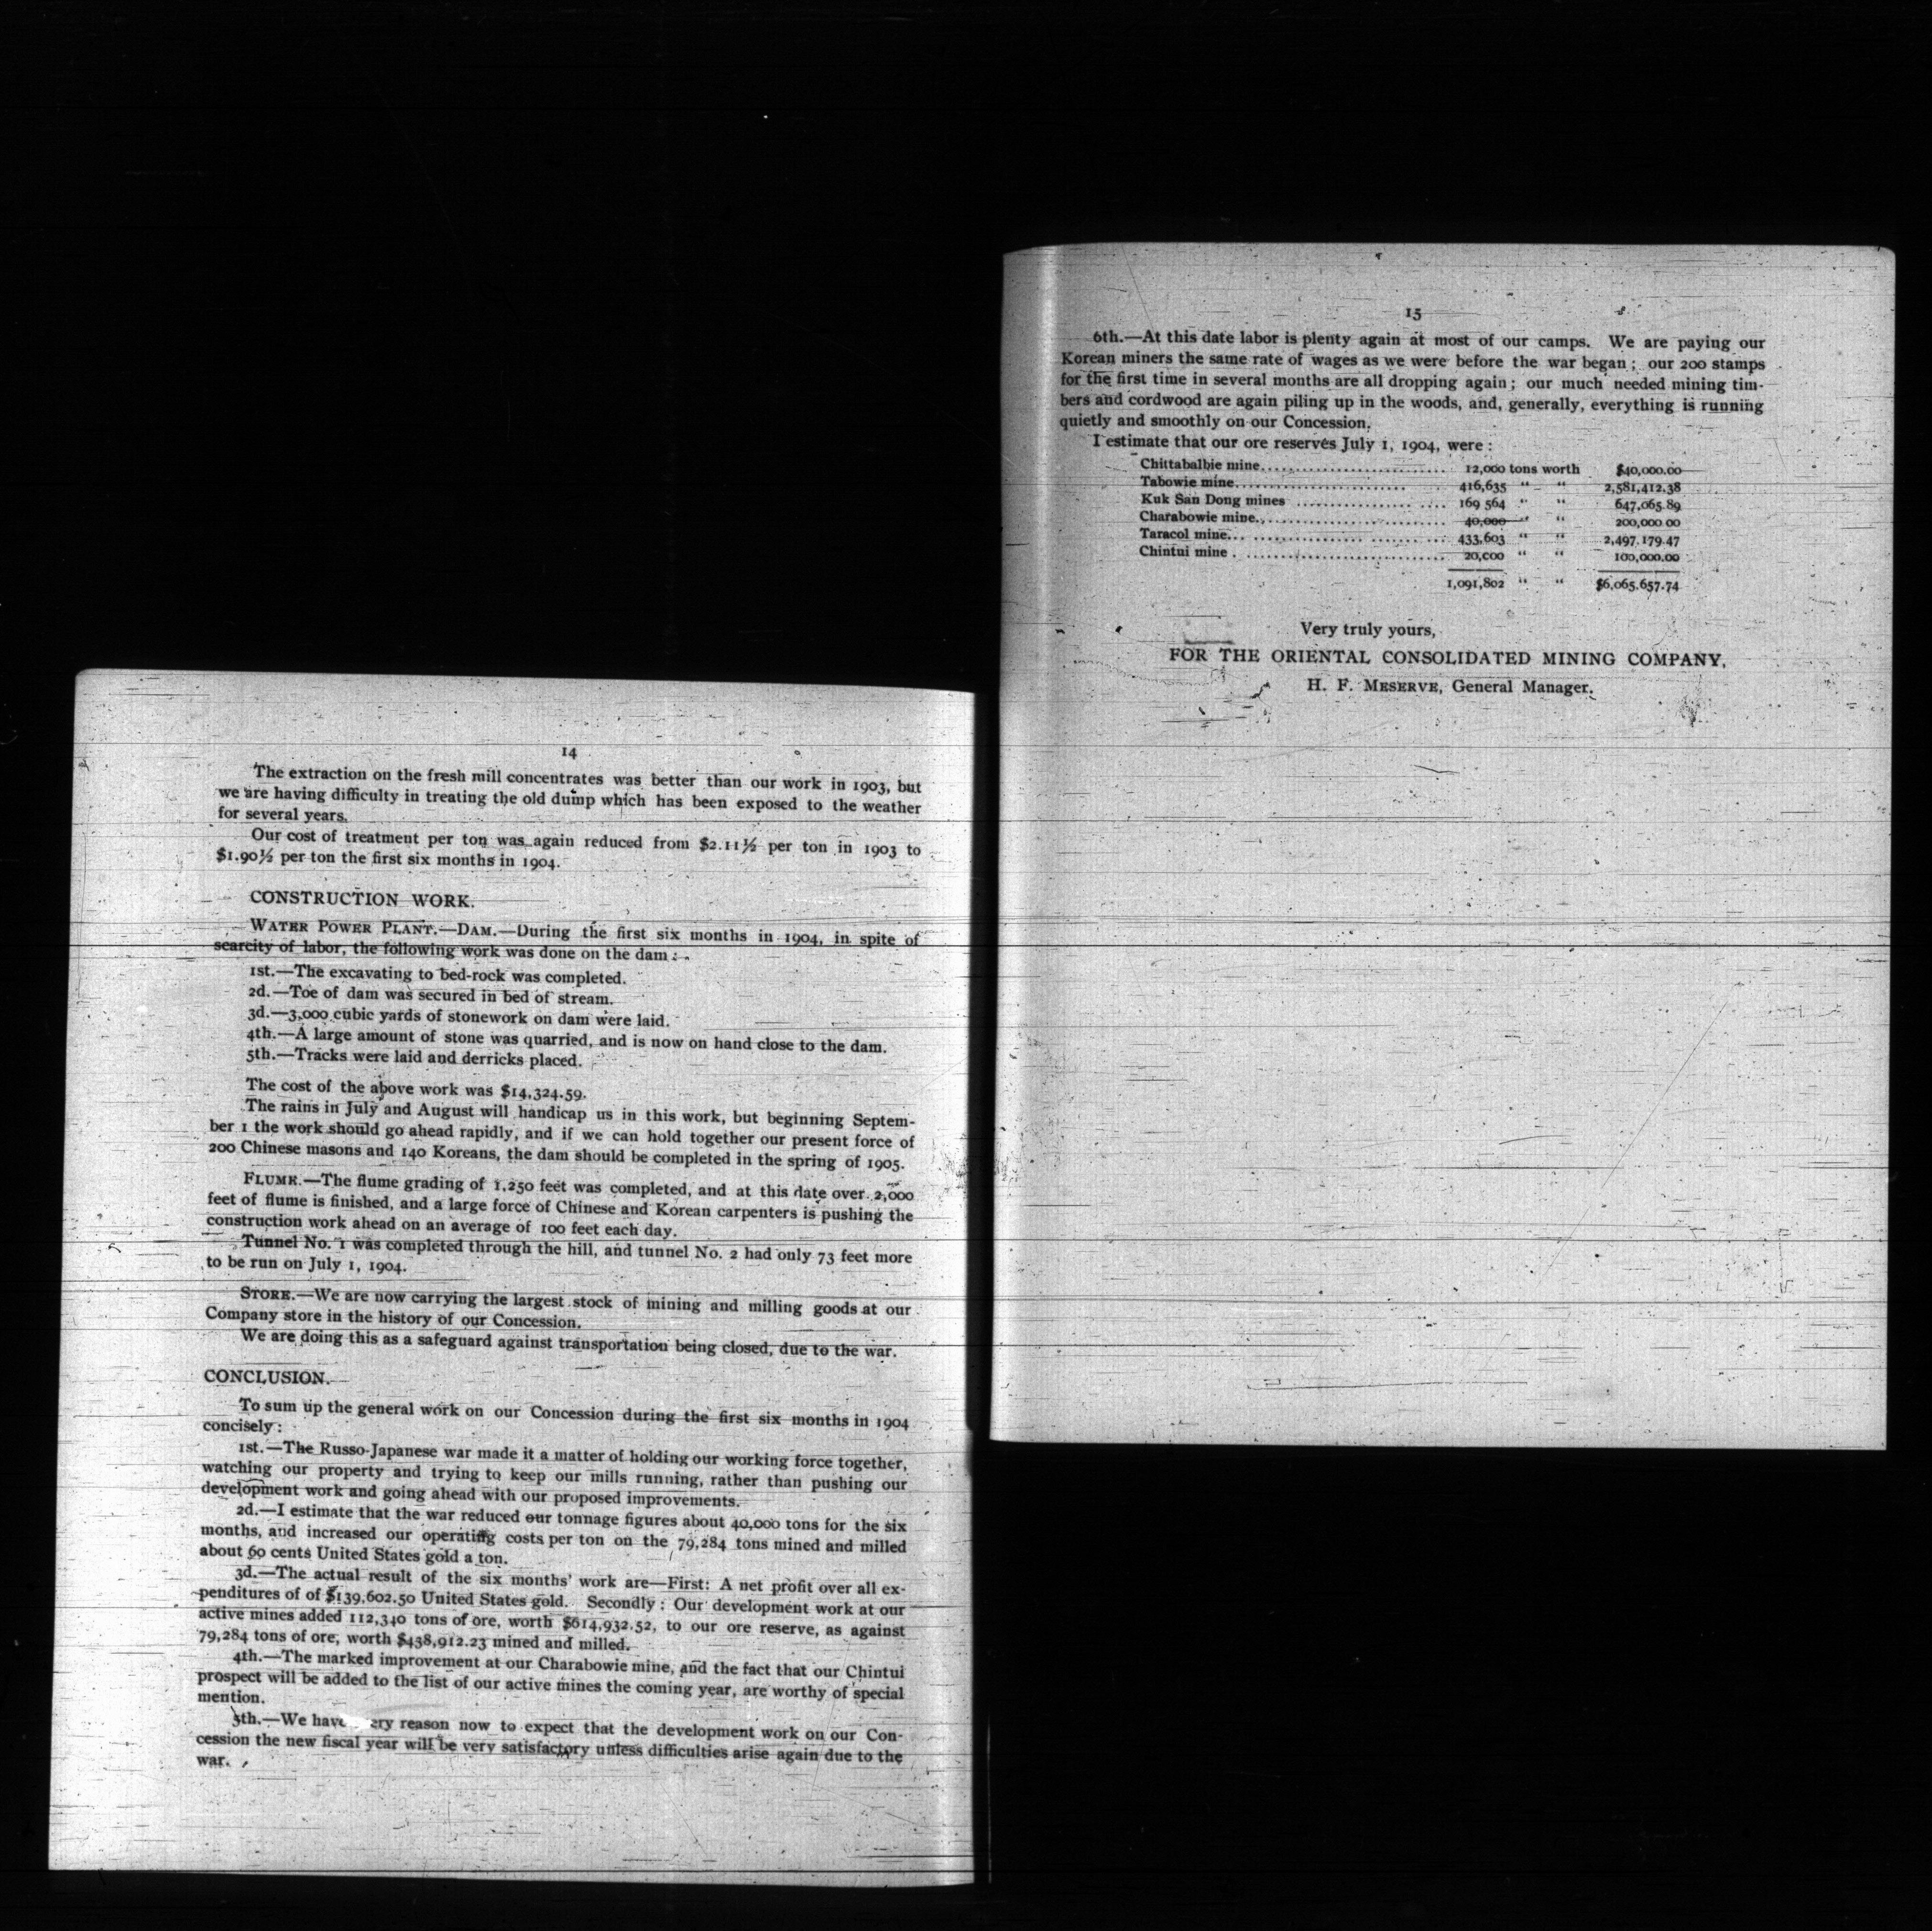 14
The extraction on the fresh mill concentrates was better than our work in 1903, but
we are having difficulty in treating the old dump which has been exposed to the weather
for several years.
Our cost of treatment per ton was again reduced from $2.11½ per ton in 1903 to
$1.90½ per ton the first six months in 1904.
CONSTRUCTION WORK.
WATER POWER PLANT.—DAM.—During the first six months in 1904, in spite of
scarcity of labor, the following work was done on the dam:
1st.—The excavating to bed-rock was completed.
2d.—Toe of dam was secured in bed of stream.
3d.—3,000 cubic yards of stonework on dam were laid.
4th.—A large amount of stone was quarried, and is now on hand close to the dam.
5th.—Tracks were laid and derricks placed.
The cost of the above work was $14,324.59.
The rains in July and August will handicap us in this work, but beginning Septem-
ber 1 the work should go ahead rapidly, and if we can hold together our present force of
200 Chinese masons and 140 Koreans, the dam should be completed in the spring of 1905.
FLUME.—The flume grading of 1,250 feet was completed, and at this date over 2,000
feet of flume is finished, and a large force of Chinese and Korean carpenters is pushing the
construction work ahead on an average of 100 feet each day.
Tunnel No. 1 was completed through the hill, and tunnel No. 2 had only 73 feet more
to be run on July 1, 1904.
STORE.—We are now carrying the largest stock of mining and milling goods at our
Company store in the history of our Concession.
We are doing this as a safeguard against transportation being closed, due to the war.
CONCLUSION.
To sum up the general work on our Concession during the first six months in 1904
concisely:
1st.—The Russo-Japanese war made it a matter of holding our working force together,
watching our property and trying to keep our mills running, rather than pushing our
development work and going ahead with our proposed improvements.
2d.—I estimate that the war reduced our tonnage figures about 40,000 tons for the six
months, and increased our operating costs per ton on the 79,284 tons mined and milled
about 60 cents United States gold a ton.
3d.—The actual result of the six months' work are—First: A net profit over all ex-
penditures of of $139,602.50 United States gold. Secondly: Our development work at our
active mines added 112,340 tons of ore, worth $614,932.52, to our ore reserve, as against
79,284 tons of ore, worth $438,912.23 mined and milled.
4th.—The marked improvement at our Charabowie mine, and the fact that our Chintui
prospect will be added to the list of our active mines the coming year, are worthy of special
mention.
5th.—We have ery reason now to expect that the development work on our Con-
cession the new fiscal year will be very satisfactory unless difficulties arise again due to the
war.
15
6th.—At this date labor is plenty again at most of our camps. We are paying our
Korean miners the same rate of wages as we were before the war began; our 200 stamps
for the first time in several months are all dropping again; our much needed mining tim-
bers and cordwood are again piling up in the woods, and, generally, everything is running
quietly and smoothly on our Concession.
I estimate that our ore reserves July 1, 1904, were:
Chittabalbie mine........................ 12,000 tons worth $40,000.00
Tabowie mine........................ 416,635 " " 2,581,412.38
Kuk San Dong mines .................... 169 564 " " 647,065.89
Charabowie mine........................ 40,000 " " 200,000 00
Taracol mine........................ 433,603 " " 2,497,179.47
Chintui mine ........................ 20,000 " " 100,000.00
1,091,802 " " $6,065,657.74
Very truly yours,
FOR THE ORIENTAL CONSOLIDATED MINING COMPANY,
H. F. MESERVE, General Manager.